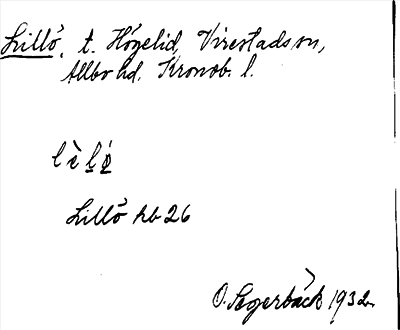 Lillö, t. Högelid, Virestads sn,
Allbo hd. Kronob. l.
Lillö hb 26
O. Segerbäck 1932